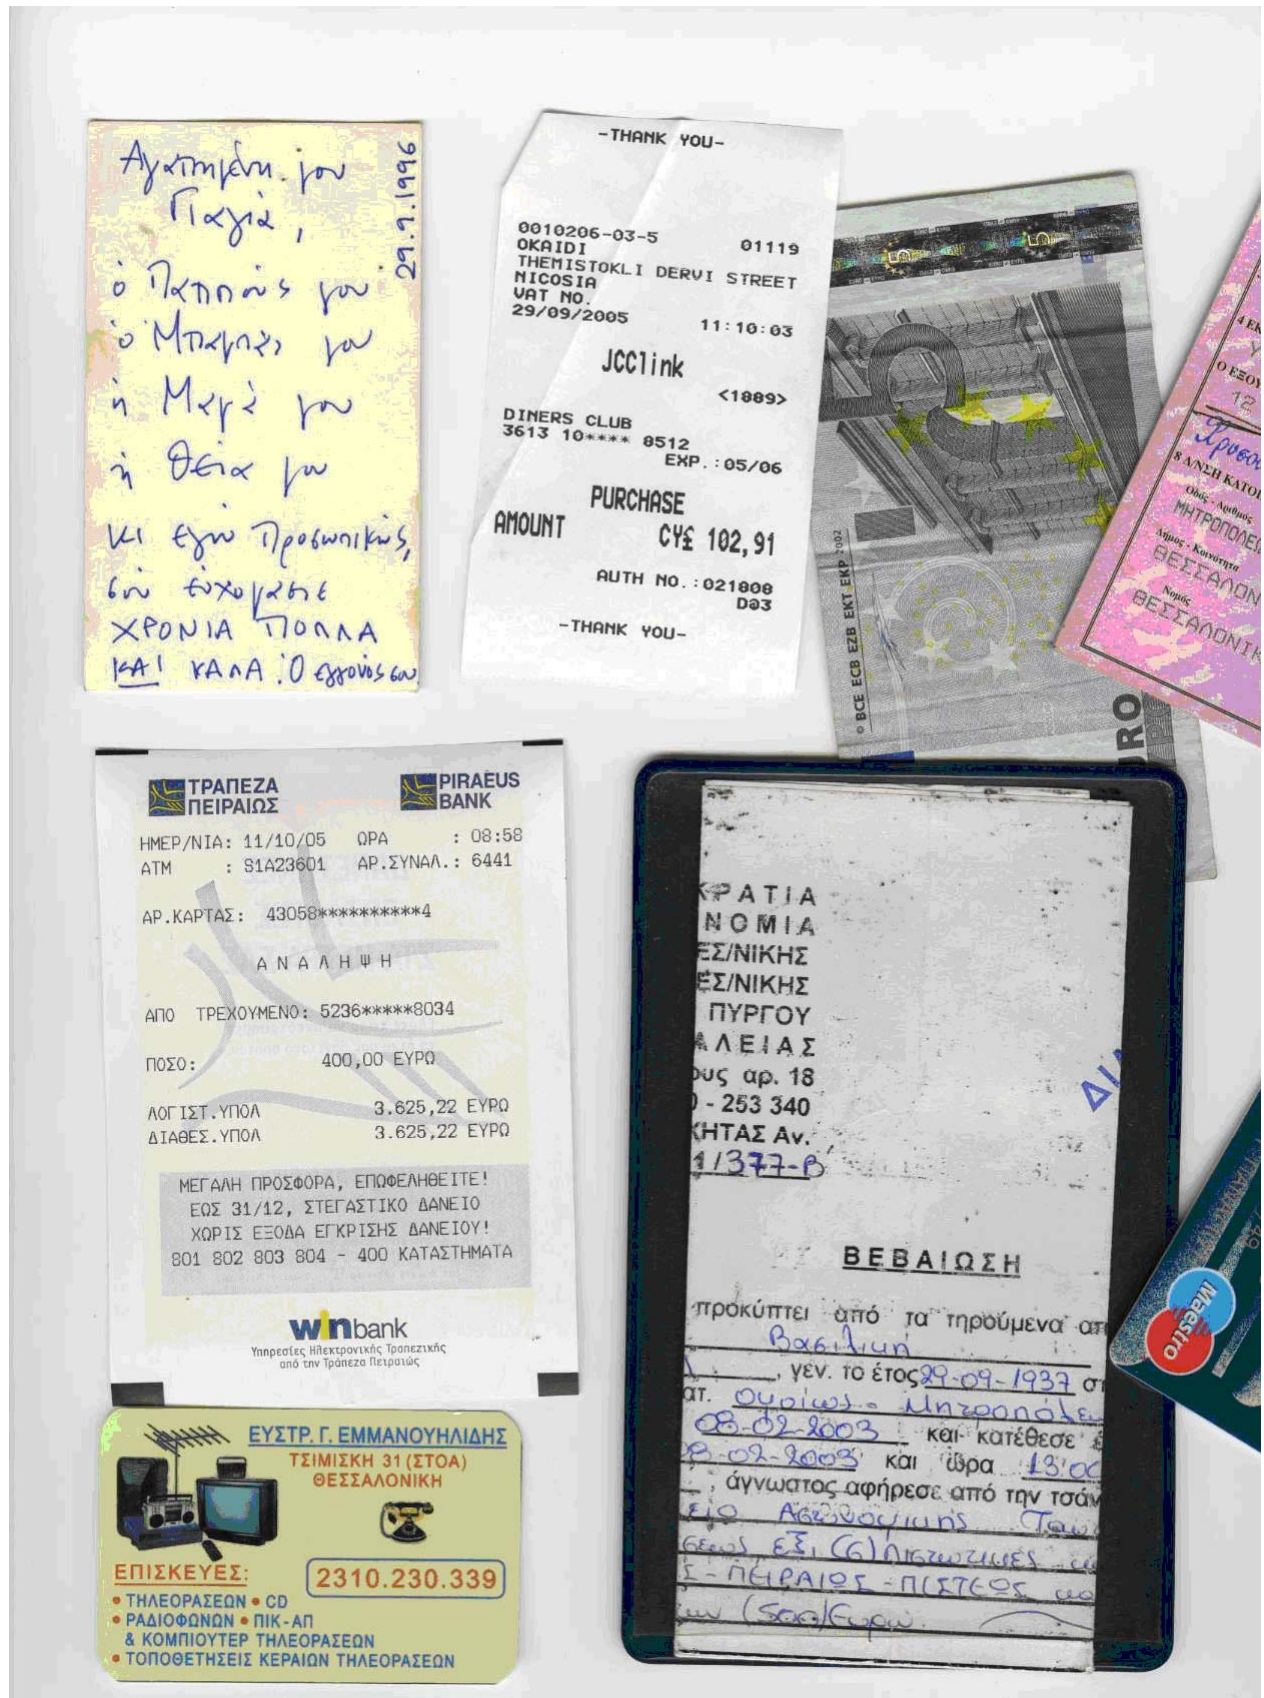 Αγαπημένη μου
Γιαγιά,
29.9.1996
ὁ Παππούς μου
ὁ Μπαμπάς μου
ἡ Μαμά μου
ἡ Θεία μου
κι εγώ Προσωπικώς,
σου ευχόμαστε
ΧΡΟΝΙΑ ΠΟΛΛΑ
ΚΑΙ ΚΑΛΑ. Ὁ εγγονός σου
-THANK YOU-
0010206-03-5 01119
OKAIDI
THEMISTOKLI DERVI STREET
NICOSIA
VAT NO.
29/09/2005 11:10:03
JCClink
<1889>
DINERS CLUB
3613 10**** 8512
EXP.:05/06
PURCHASE
AMOUNT CY£ 102,91
AUTH NO.:021808
D@3
-THANK YOU-
© BCE ECB EZB EKT EKP 2002
URO
4 ΕΚ
Ο ΕΞΟΥ
12
8 Δ/ΝΣΗ ΚΑΤΟΙ
Οδός - Αριθμός
ΜΗΤΡΟΠΟΛΕΩ
Δήμος - Κοινότητα
ΘΕΣΣΑΛΟΝ
Νομός
ΘΕΣΣΑΛΟΝΙΚ
ΤΡΑΠΕΖΑ
ΠΕΙΡΑΙΩΣ
PIRAEUS
BANK
ΗΜΕΡ/ΝΙΑ: 11/10/05 ΩΡΑ : 08:58
ATM : S1A23601 ΑΡ.ΣΥΝΑΛ.: 6441
ΑΡ.ΚΑΡΤΑΣ: 43058**********4
ΑΝΑΛΗΨΗ
ΑΠΟ ΤΡΕΧΟΥΜΕΝΟ: 5236*****8034
ΠΟΣΟ: 400,00 ΕΥΡΩ
ΛΟΓΙΣΤ.ΥΠΟΛ 3.625,22 ΕΥΡΩ
ΔΙΑΘΕΣ.ΥΠΟΛ 3.625,22 ΕΥΡΩ
ΜΕΓΑΛΗ ΠΡΟΣΦΟΡΑ, ΕΠΩΦΕΛΗΘΕΙΤΕ!
ΕΩΣ 31/12, ΣΤΕΓΑΣΤΙΚΟ ΔΑΝΕΙΟ
ΧΩΡΙΣ ΕΞΟΔΑ ΕΓΚΡΙΣΗΣ ΔΑΝΕΙΟΥ!
801 802 803 804 - 400 ΚΑΤΑΣΤΗΜΑΤΑ
winbank
Υπηρεσίες Ηλεκτρονικής Τραπεζικής
από την Τράπεζα Πειραιώς
ΕΥΣΤΡ. Γ. ΕΜΜΑΝΟΥΗΛΙΔΗΣ
ΤΣΙΜΙΣΚΗ 31 (ΣΤΟΑ)
ΘΕΣΣΑΛΟΝΙΚΗ
ΕΠΙΣΚΕΥΕΣ:
2310.230.339
• ΤΗΛΕΟΡΑΣΕΩΝ • CD
• ΡΑΔΙΟΦΩΝΩΝ • ΠΙΚ-ΑΠ
& ΚΟΜΠΙΟΥΤΕΡ ΤΗΛΕΟΡΑΣΕΩΝ
• ΤΟΠΟΘΕΤΗΣΕΙΣ ΚΕΡΑΙΩΝ ΤΗΛΕΟΡΑΣΕΩΝ
ΚΡΑΤΙΑ
ΝΟΜΙΑ
ΕΣ/ΝΙΚΗΣ
ΕΣ/ΝΙΚΗΣ
ΠΥΡΓΟΥ
ΑΛΕΙΑΣ
ους αρ. 18
0 - 253 340
ΚΗΤΑΣ Αν.
1/377-Β
ΔΙΑ
ΒΕΒΑΙΩΣΗ
προκύπτει από τα τηρούμενα απ
Βασιλική
, γεν. το έτος 29-09-1937 στ
ατ. Μητροπόλεω
08-02-2003 και κατέθεσε
08-02-2003 και ώρα 13:00
, άγνωστος αφήρεσε από την τσάν
Αστυνομικής Ταυ
εξι (6)
Σ-ΠΕΙΡΑΙΩΣ-ΠΙΣΤΕΩΣ
(500) Ευρώ
Maestro